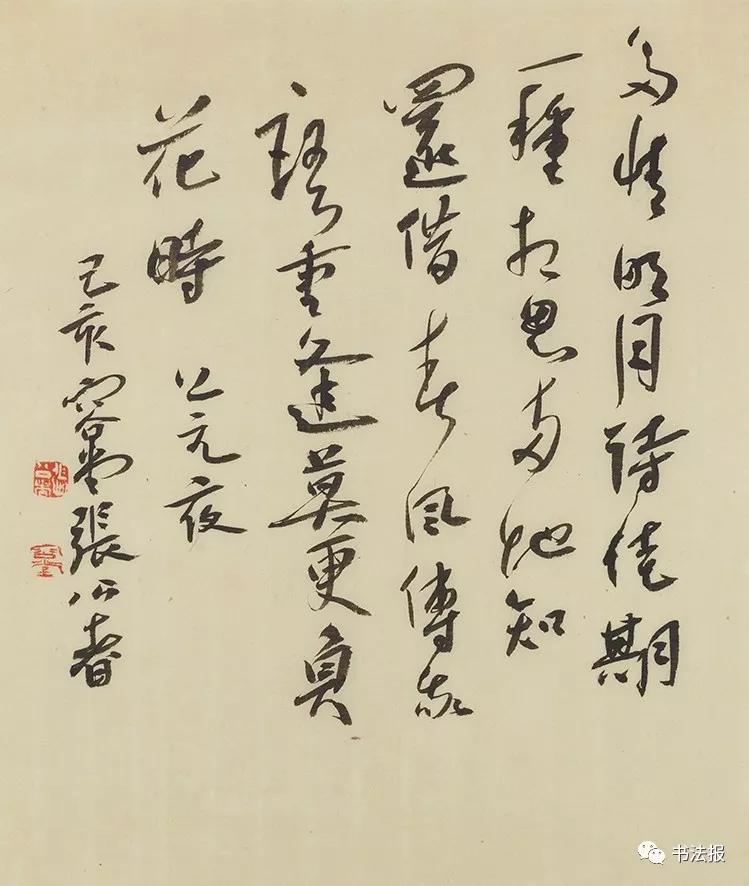 多情明月待佳期
一種相思兩地知
還借春風傳
語重逢莫更負
花時 元夜
己亥容堂張公者
书法报